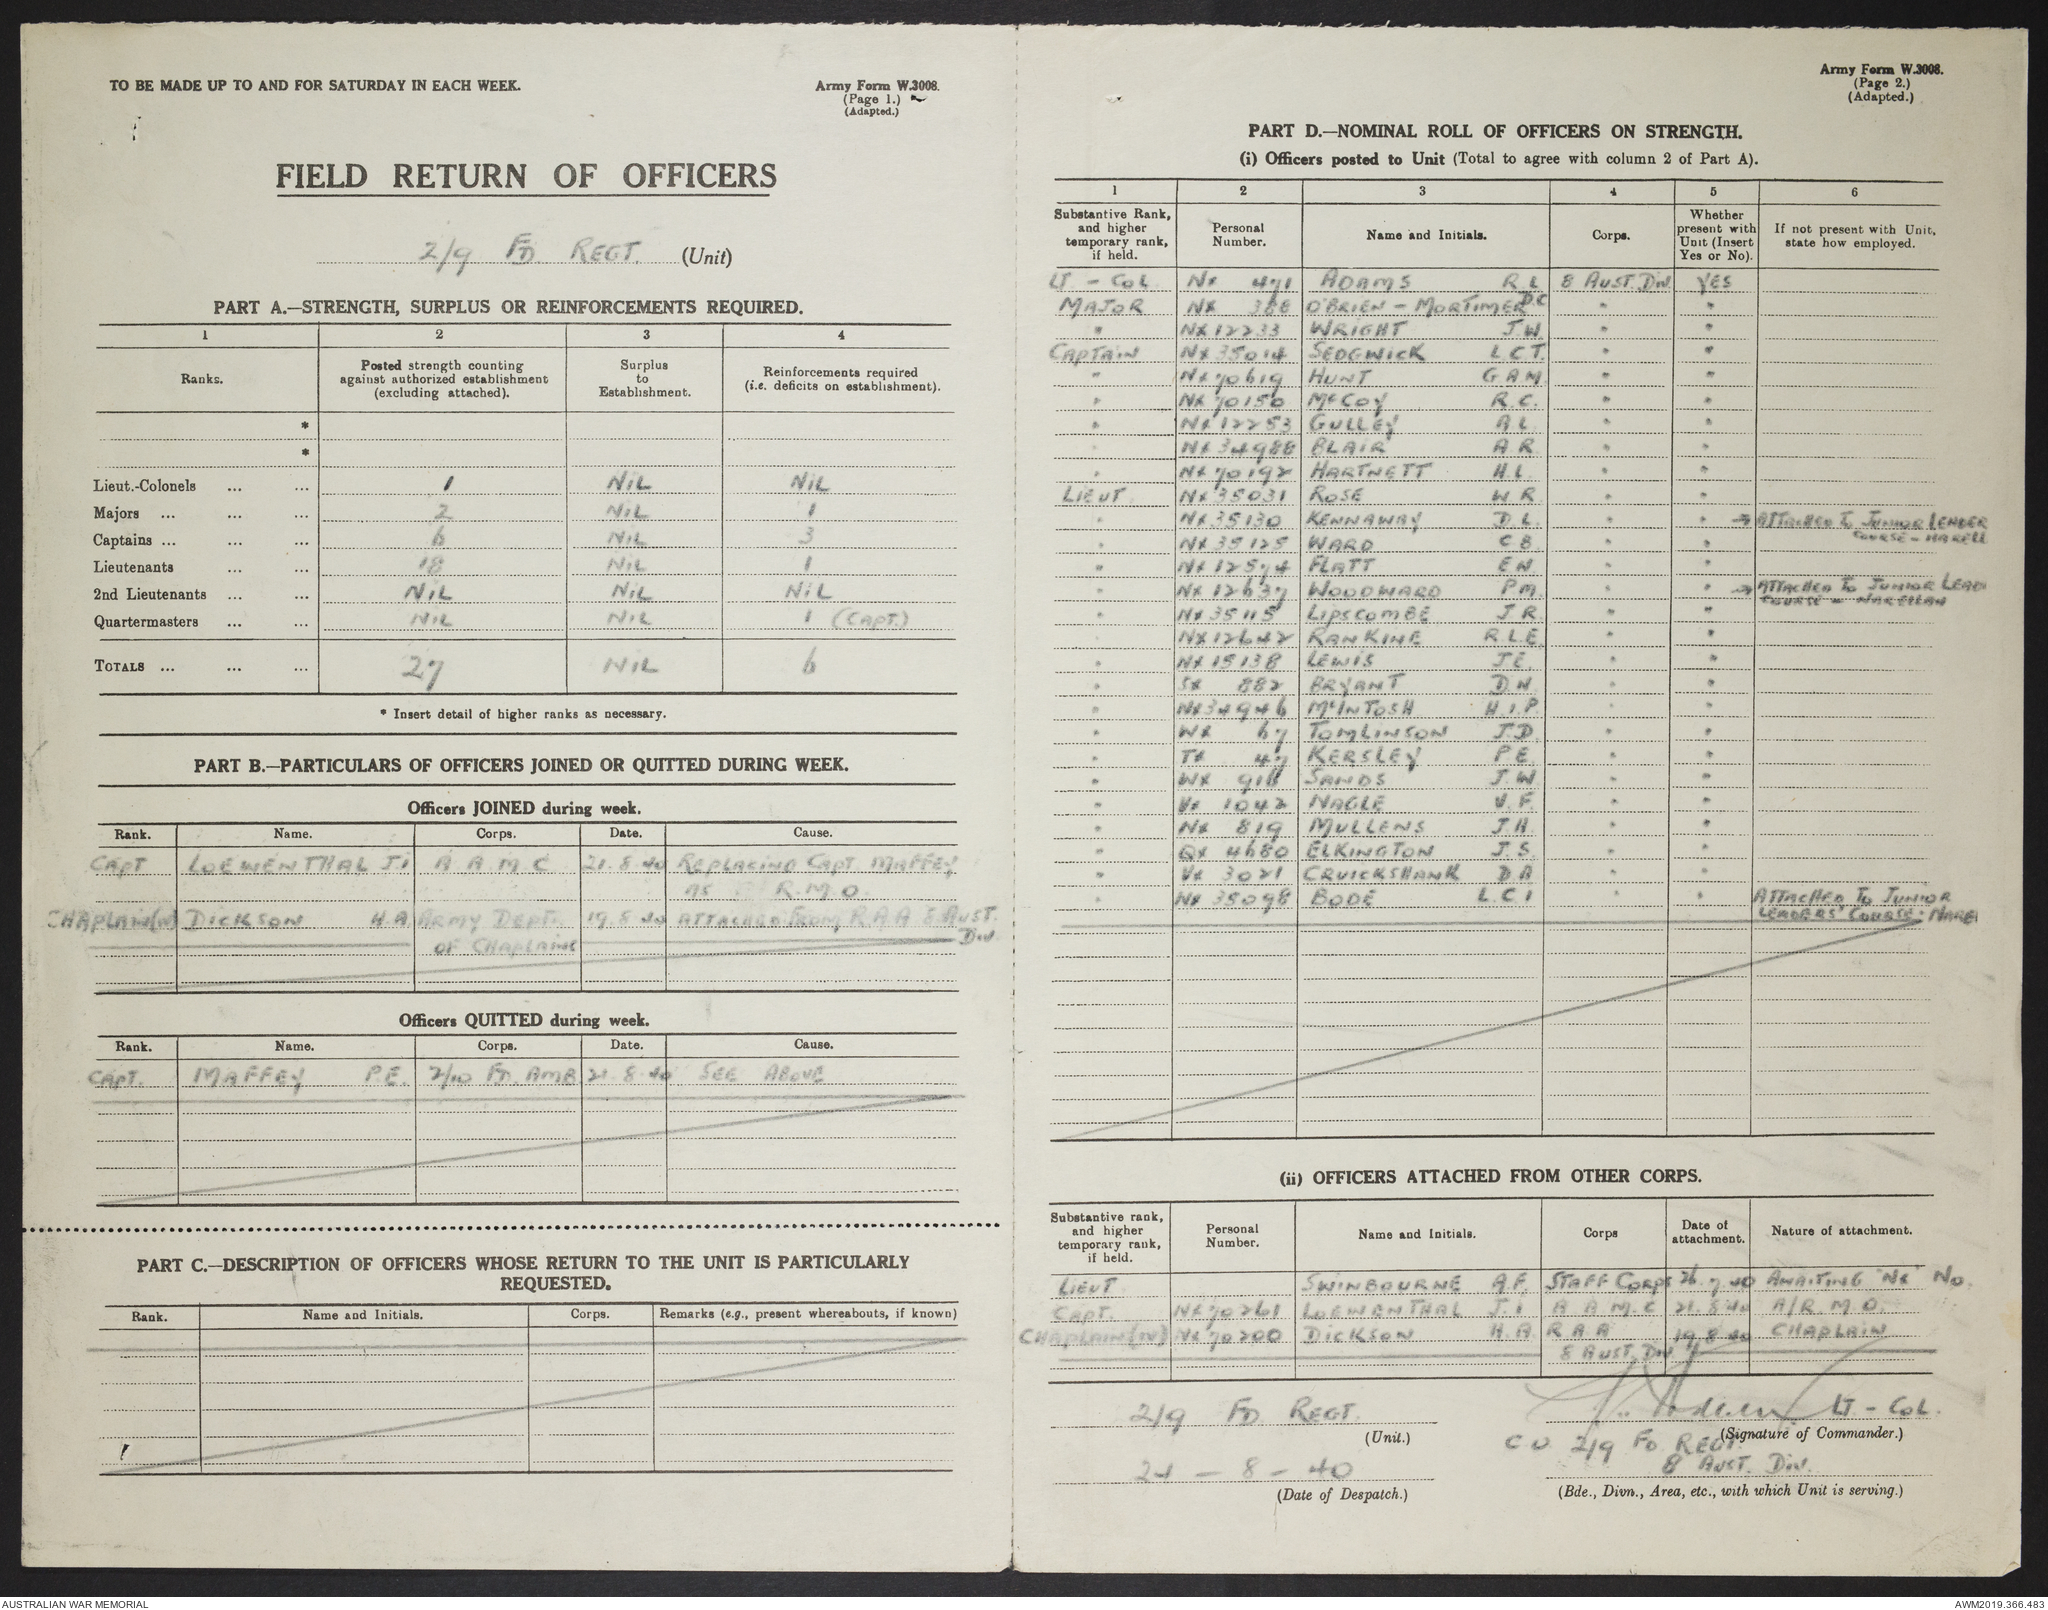 TO BE MADE UP TO AND FOR SATURDAY IN EACH WEEK.
Army Form W.3008.
(Page 1.)
(Adapted.)
FIELD RETURN OF OFFICERS
2/9 FD. REGT. (Unit)
PART A.—STRENGTH, SURPLUS OR REINFORCEMENTS REQUIRED.
1 2 3 4
Ranks. Posted strength counting against authorized establishment (excluding attached). Surplus to Establishment. Reinforcements required (i.e. deficits on establishment).
*
*
Lieut.-Colonels ... ... 1 NIL NIL
Majors ... ... ... 2 NIL 1
Captains ... ... ... 6 NIL 3
Lieutenants ... ... 18 NIL 1
2nd Lieutenants ... ... NIL NIL NIL
Quartermasters ... ... NIL NIL 1 (CAPT.)
TOTALS ... ... ... 27 NIL 6
* Insert detail of higher ranks as necessary.
PART B.—PARTICULARS OF OFFICERS JOINED OR QUITTED DURING WEEK.
Officers JOINED during week.
Rank. Name. Corps. Date. Cause.
CAPT LOEWENTHAL J.I A.A.M.C 21.8.40 REPLACING CAPT. MAFFEY
AS R.M.O.
CHAPLAIN(IV) DICKSON H.A. ARMY DEPT. 19.8.40 ATTACHED FROM R.A.A 8 AUST.
OF CHAPLAINS DIV.
Officers QUITTED during week.
Rank. Name. Corps. Date. Cause.
CAPT. MAFFEY P.E. 2/10 FD. AMB. 21.8.40 SEE ABOVE
PART C.—DESCRIPTION OF OFFICERS WHOSE RETURN TO THE UNIT IS PARTICULARLY
REQUESTED.
Rank. Name and Initials. Corps. Remarks (e.g., present whereabouts, if known)
Army Form W.3008.
(Page 2.)
(Adapted.)
PART D.—NOMINAL ROLL OF OFFICERS ON STRENGTH.
(i) Officers posted to Unit (Total to agree with column 2 of Part A).
1 2 3 4 5 6
Substantive Rank, and higher temporary rank, if held. Personal Number. Name and Initials. Corps. Whether present with Unit (Insert Yes or No). If not present with Unit, state how employed.
LT - COL NX 471 ADAMS R L 8 AUST. DIV. YES
MAJOR NX 388 O'BRIEN - MORTIMER D C " "
" NX 12233 WRIGHT J.W. " "
CAPTAIN NX 35014 SEDGWICK L C T. " "
" NX 70619 HUNT G A M. " "
" NX 70150 McCOY R.C. " "
" NX 12253 GULLEY A L " "
" NX 34988 BLAIR A R. " "
" NX 70192 HARTNETT H.L. " "
LIEUT. NX 35031 ROSE W R. " "
" NX 35130 KENNAWAY D L. " " → ATTACHED TO JUNIOR LEADER
COURSE - NARELL
" NX 35125 WARD C B. " "
" NX 12574 FLATT E N. " "
" NX 12637 WOODWARD P M. " " → ATTACHED TO JUNIOR LEAD
COURSE - NARELLAN
" NX 35115 LIPSCOMBE J R. " "
" NX 12642 RANKINE R.L.E. " "
" NX 15138 LEWIS J.E. " "
" SX 882 BRYANT D.N. " "
" NX 34946 McINTOSH H.I.P. " "
" WX 67 TOMLINSON J.D. " "
" TX 47 KERSLEY P.E. " "
" WX 918 SANDS J.W " "
" VX 1042 NAGLE V.F. " "
" NX 819 MULLENS J.H. " "
" QX 4680 ELKINGTON J.S. " "
" VX 3021 CRUICKSHANK D A " "
" NX 35098 BODE L.C.I " " ATTACHED TO JUNIOR
LEADERS' COURSE: NARE
(ii) OFFICERS ATTACHED FROM OTHER CORPS.
Substantive rank, and higher temporary rank, if held. Personal Number. Name and Initials. Corps Date of attachment. Nature of attachment.
LIEUT SWINBOURNE A.F. STAFF CORPS 26.7.40 AWAITING "NX" NO.
CAPT. NX 70261 LOEWENTHAL J.I A A M.C 21.8.40 A/R.M.O.
CHAPLAIN(IV) NX 70200 DICKSON H.A. R A A 19.8.40 CHAPLAIN
8 AUST. DIV.
2/9 FD. REGT.
(Unit.)
LT - COL.
(Signature of Commander.)
C O 2/9 FD. REGT.
24 - 8 - 40
(Date of Despatch.)
8 AUST. DIV.
(Bde., Divn., Area, etc., with which Unit is serving.)
AUSTRALIAN WAR MEMORIAL
AWM2019.366.483